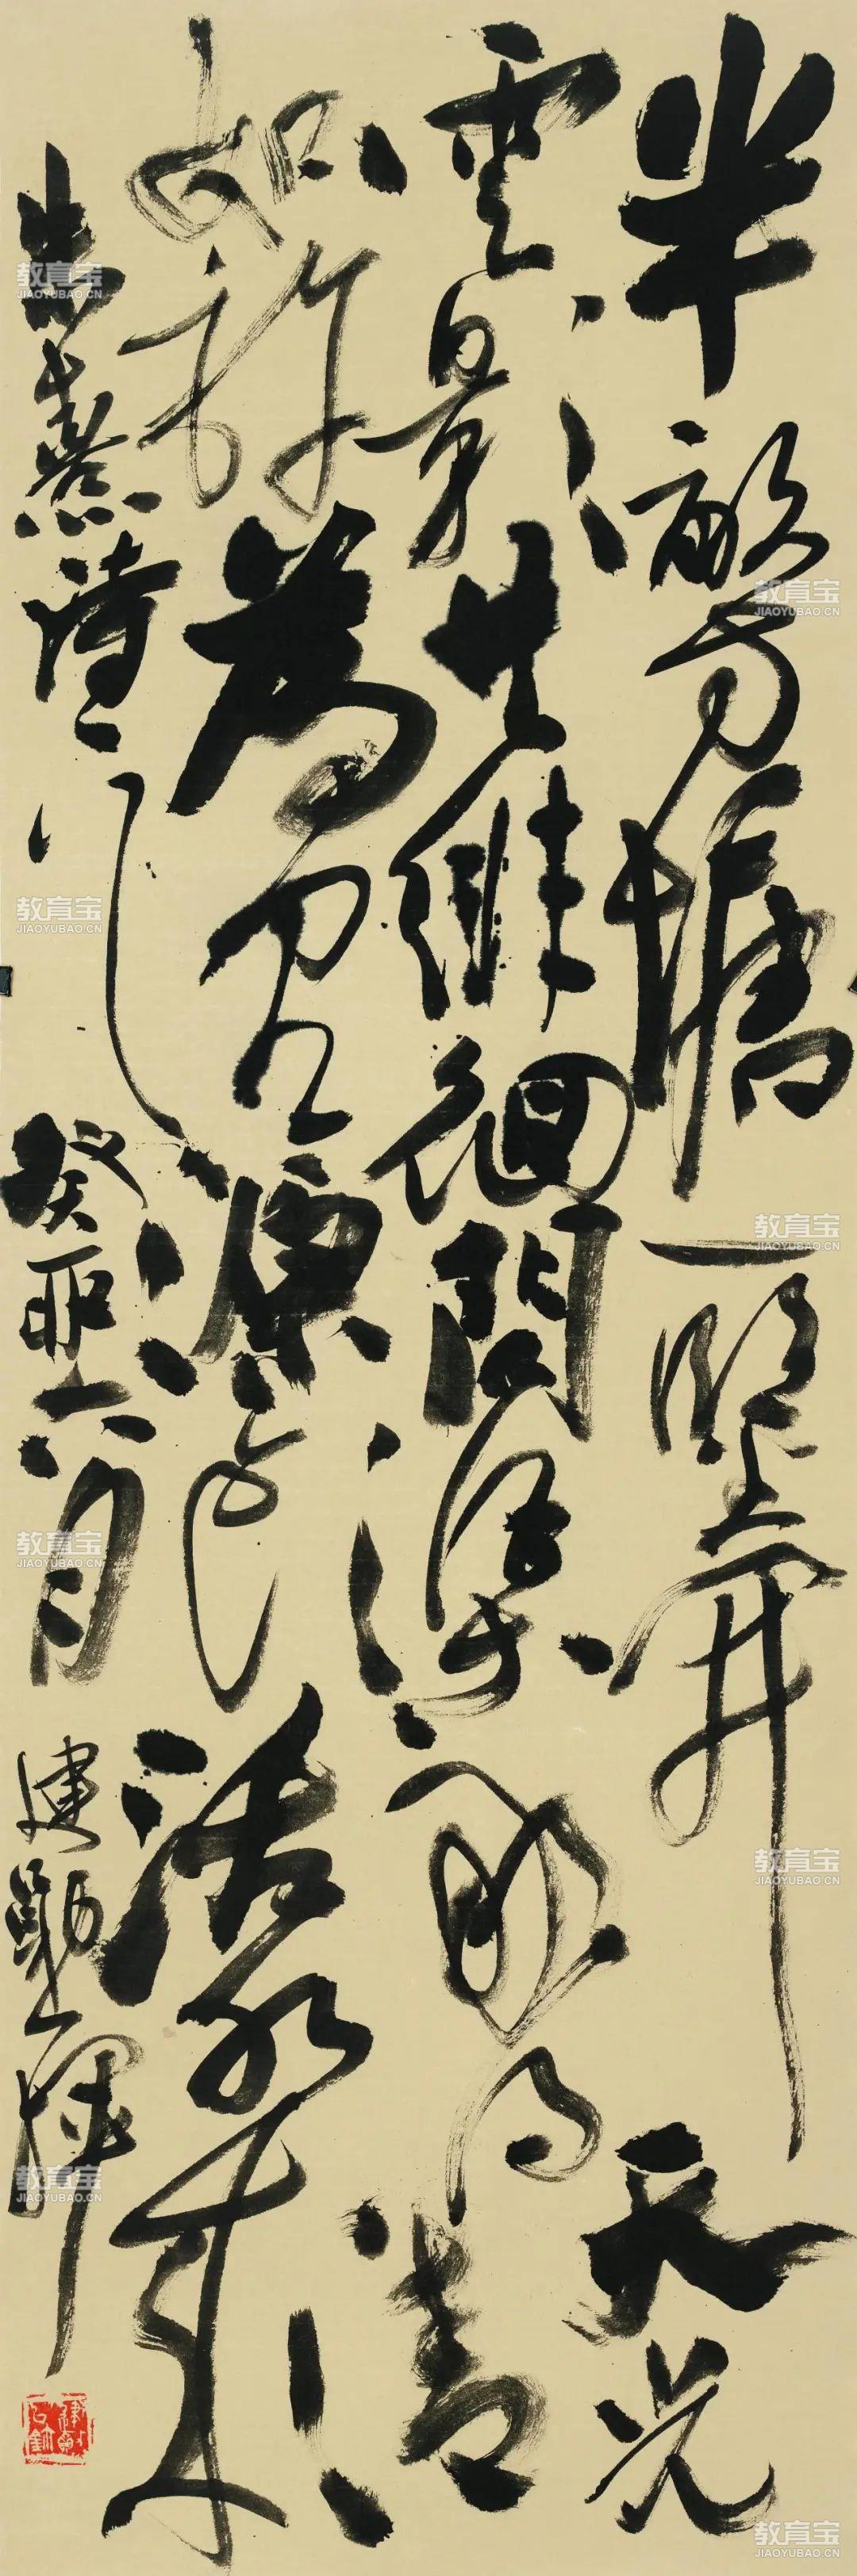 半畝方塘一鑑開天光
雲影共徘徊問渠那得清
如許為有源頭活水來
朱熹詩 癸 六月 建勳揮
教育宝
JIAOYUBAO.CN
教育宝
JIAOYUBAO.CN
教育宝
JIAOYUBAO.CN
教育宝
JIAOYUBAO.CN
教育宝
JIAOYUBAO.CN
教育宝
JIAOYUBAO.CN
教育宝
JIAOYUBAO.CN
教育宝
JIAOYUBAO.CN